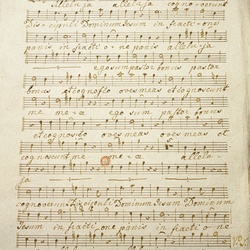 Alleluja alleluja cognoverunt
Discipuli Dominum Jesum in fracti one
panis in fracti o ne panis alleluja
ego sum pastor bonus pastor
bonus et cognosco oves meas et cognoscunt
me me a ego sum pastor bonus
et cognosco oves meas oves meas
et cognoscunt me me a allelu
cognoverunt Discipuli Dominum Jesum Dominum
Jesum in fracti one panis in fracti o ne